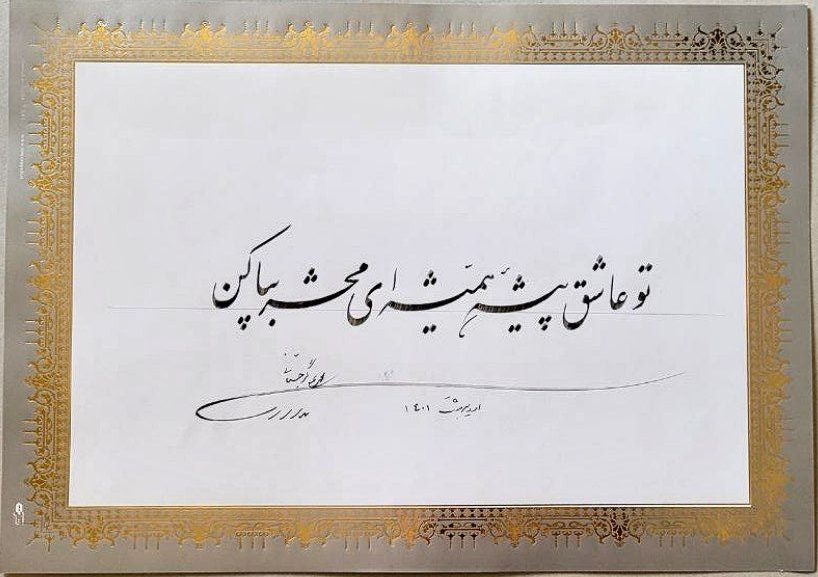 تو عاشق پیشهٔ همیشه ای محشر بپا کن
اردیبهشت ۱۴۰۱